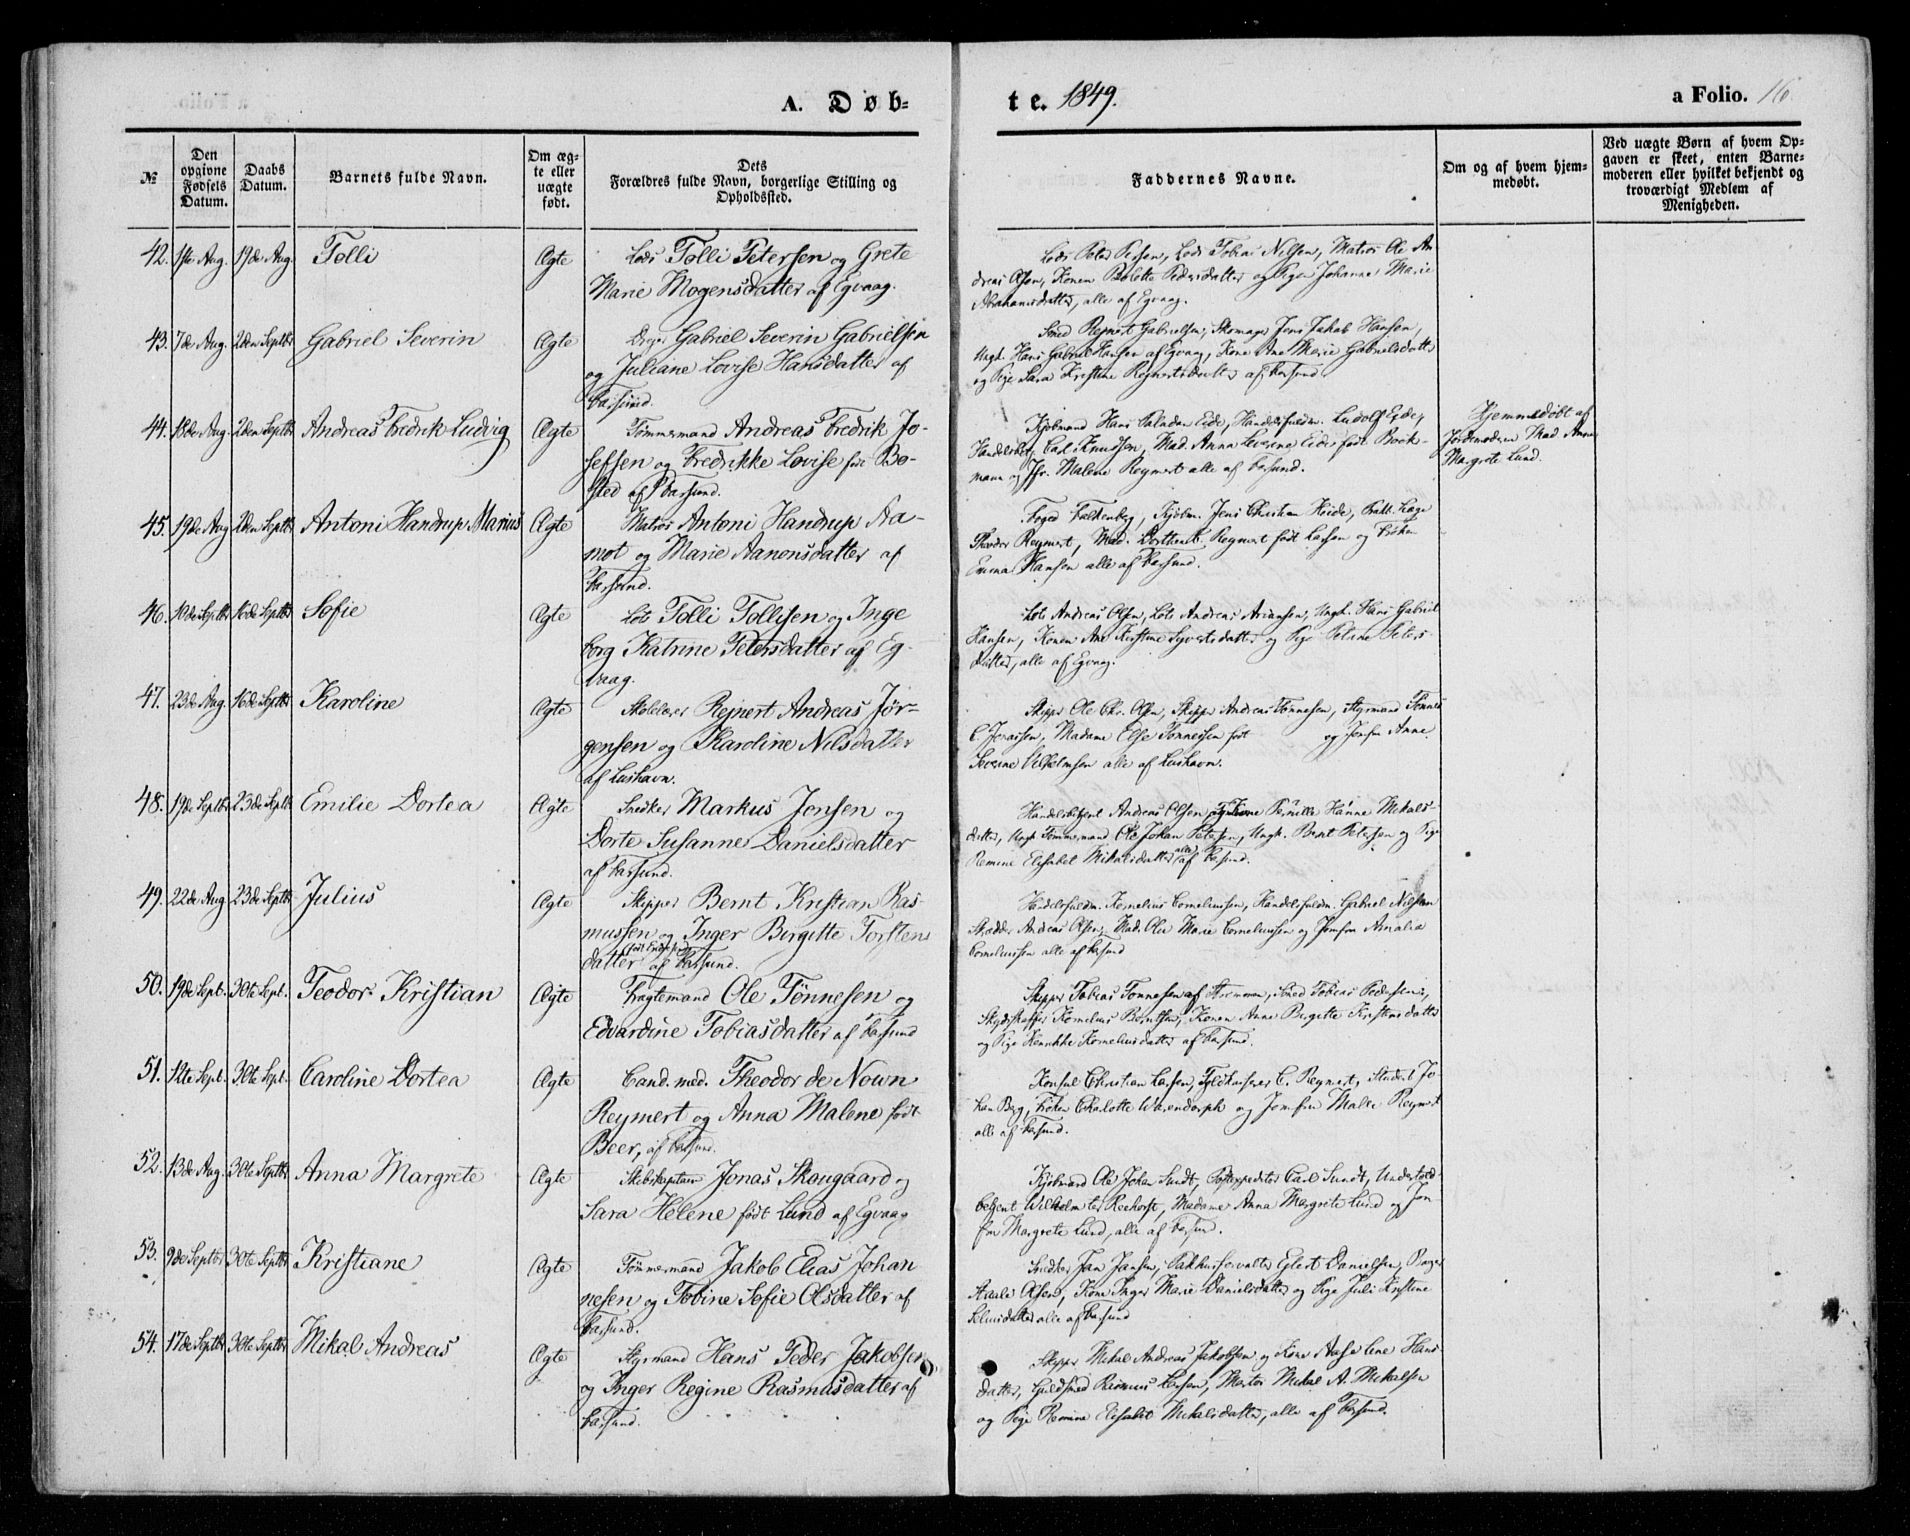 A. Døb-
te. 1849.
a Folio. 16.
№
Den opgivne Fødsels Datum.
Daabs Datum.
Barnets fulde Navn.
Om ægte eller uægte født.
Dets
Forældres fulde Navn, borgerlige Stilling og
Opholdssted.
Faddernes Navne.
Om og af hvem hjem-
medøbt.
Ved uægte Børn af hvem Op-
gaven er skeet, enten Barne-
moderen eller hvilket bekjendt og
troværdigt Medlem af
Menigheden.
42. 1ste Aug. 19de Aug. Tolli Ægte Lods Tolli Petersen og Grete
Marie Mogensdatter af Egvaag.
Lods Peter Tobias Nilsen, Matros Ole An-
dreas Olsen, Konen Bolette Pedersdatter og Pige Johanne Marie
Abrahamsdatter, alle af Egvaag.
43. 7de Aug. 2den Septbr Gabriel Severin Ægte Gabriel Severin Gabrielsen
og Juliane Lovise Hansdatter af
Farsund.
Smed Reinert Gabrielsen, Skomager Jens Jakob Hansen,
Ungk. Hans Gabriel Hansen af Egvaag, Kone Ane Marie Gabrielsdatter
og Pige Sara Kristine Reinertsdatter af Farsund
44. 18de Aug. 2den Septbr Andreas Fredrik Ludvig Ægte Tømmermand Andreas Fredrik Jo-
sefsen og Fredrikke Lovise født Bo-
sted af Farsund.
Kjøbmand Hans Eide, Handelsfuldm. Ludolf Eide,
Carl Knudsen, Mad. Anna Severine Eide født Book-
mann og Jfr. Malene Reymert alle af Farsund.
Hjemmedøbt af
Jordemoderen Mad Anna
Margrete Lund.
45. 19de Aug 2den Septbr Antoni Handrup Marius Ægte Matros Antoni Handrup Aa-
mot og Marie Aanensdatter af
Farsund.
Foged Falkenberg, Kjøbm. Jens Christian
Reymert, Mad. Reymert født Larsen og Frøken
Emma Hansen alle af Farsund.
46. 10de Septbr 16de Septbr Sofie Ægte Lots Tolli Tollisen og Inge
borg Katrine Petersdatter af Eg-
vaag.
Lots Andreas Olsen, Lots Andreas Ariansen, Ungk. Hans Gabriel
Hansen, Konen Ane Kirstine Syvertsdatter og Pige Peline Peters-
datter, alle af Egvaag.
47. 23de Aug. 16de Septbr Karoline Ægte Skolelærer Rejnert Andreas Jør-
gensen og Karoline Nilsdatter
af Lushavn.
Skipper Ole Chr. Olsen, Skipper Andreas Tønnesen, Styrmand Tønnes
C. Madame Else Tønnesen født og Jomfru Anne
Severine Vilhelmsen alle af Lushavn.
48. 19de Septbr 23de Septbr Emilie Dortea Ægte Snedker Markus Jensen og
Dorte Susanne Danielsdatter
af Farsund.
Handelsbetjent Andreas Olsen og Kone Pernille Hanne Mikals-
datter, Ungk. Tømmermand Ole Johan Petersen, Ungk. Bernt Petersen og Pige
Remine Elisabet Mikalsdatter alle af Farsund.
49. 22de Aug 23de Septbr Julius Ægte Skipper Bernt Kristian Ras-
mussen og Inger Birgitte Torstens
datter af Farsund.
Handelsfuldm. Kornelius Corneliussen, Handelsfuldm. Gabriel Nilsen
Skrædder Andreas Olsen, Mad. Ole Marie Corneliussen og Jomfru Amalia
Corneliussen alle af Farsund
50. 19de Sept. 30te Sept. Teodor Kristian Ægte Fragtemand Ole Tønnesen og
Edvardine Tobiasdatter af Farsund
Skipper Tobias Tønnesen af Smed Tobias Pedersen,
Skydsskaffer Kornelius Berntsen, Konen Anne Birgitte Kristensdatter
og Pige Henrikke Korneliusdatter af Farsund.
51. 12te Sept. 30te Sept. Caroline Dortea Ægte Cand. med. Theodor de Nown
Reymert og Anna Malene født
Beer, af Farsund.
Konsul Christian Larsen, C. Reymert, Student Jo-
han Berg, Frøken Charlotte Warendorph og Jomfru Malene Reymert
alle af Farsund.
52. 13de Aug. 30te Septbr Anna Margrete Ægte Skibskaptein Jonas Skougaard og
Sara Helene født Lund af Egvaag
Kjøbmand Ole Johan Sundt, Postexpeditør Carl Sundt, Undertold-
betjent Wilhelm ter Reehorst, Madame Anna Margrete Lund og Jom-
fru Margrete Lund, alle af Farsund.
53. 9de Septbr 30te Septbr Kristiane Ægte Tømmermand Jakob Elias Johan
nesen og Tobine Sofie Olsdatter af
Farsund.
Snedker Jan Jansen, Pakhusforvalter Eilert Danielsen, Bager
Olsen, Kone Inger Marie Danielsdatter og Pige Juli Kristine
alle af Farsund
54. 17de Septbr 30te Septbr Mikal Andreas Ægte Styrmand Hans Peder Jakobsen
og Inger Regine Rasmusdatter af
Farsund.
Skipper Mikal Andreas Jakobsen og Kone Aase Line Hans-
datter, Guldsmed Rasmus Larsen, Matros Mikal A. Mikalsen
og Pige Remine Elisabet Mikalsdatter, alle af Farsund.